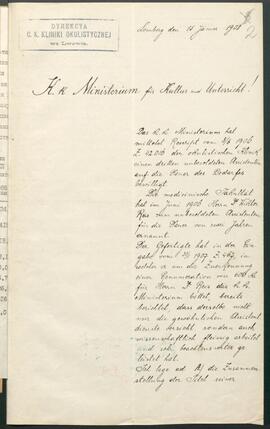 DYREKCYA
C. K. KLINIKI OKULISTYCZNEJ
we Lwowie.
Lemberg den 15 Jänner 1908
2
K. k. Ministerium für Kultus und Unterricht!
Das k. k. Ministerium hat
mittelst Reskript vom 1906
Z. 42016 der okulistischen Klinik
einen dritten unbesoldeten Assistenten
auf die Dauer des Bedarfes
bewilligt.
Die medicinische Fakultät
hat im Juni 1906 Herrn Dr
Reis zum unbesoldeten Assistenten
für die Dauer von zwei Jahren
ernannt.
Der Gefertigte hat in der Ein-
gabe vom 1907 Z. in
welcher er um die Zuerkennung
einer Remuneration von
für Herrn Dr Reis das k. k.
Ministerium bittet, bereits
berichtet, dass derselbe nicht
nur die gewöhnlichen Assistenten
dienste versieht, sondern auch
wissenschaftlich fleissig arbeitet
und sehr beachtenswerthes ge-
leistet hat.
Ich lege ad A) die Zusamm-
stellung der Titel seiner